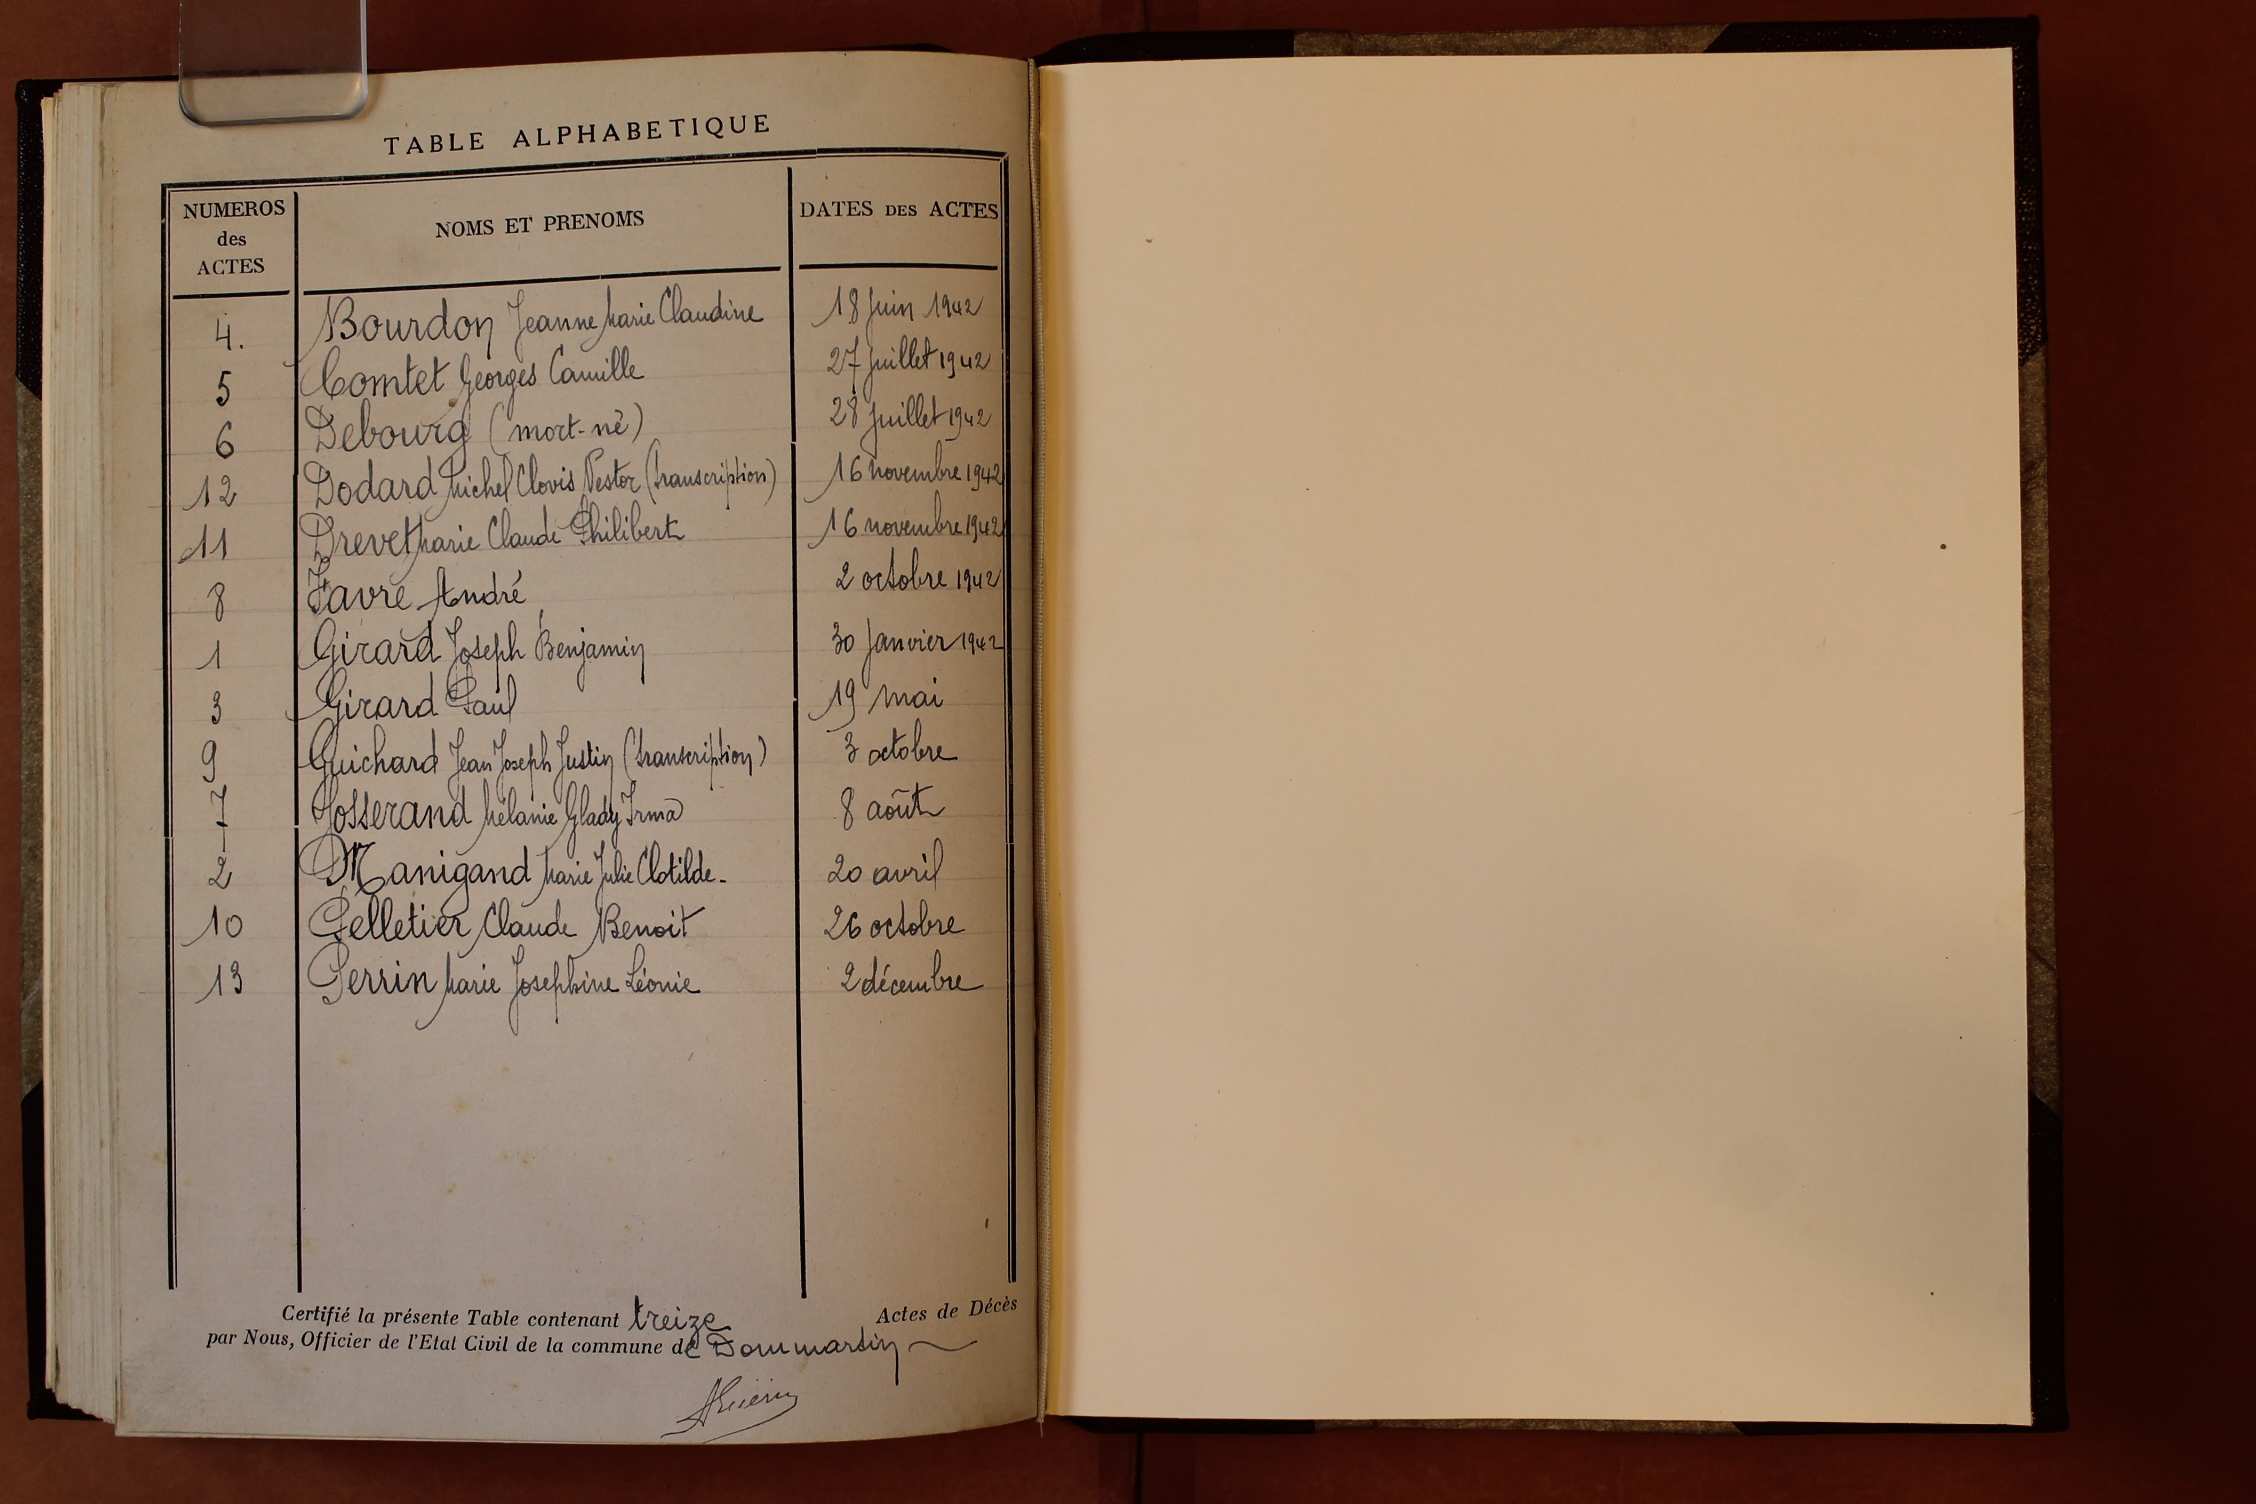 TABLE ALPHABETIQUE
NUMEROS des ACTES NOMS ET PRENOMS DATES DES ACTES
4. Bourdon Jeanne Marie Claudine 18 Juin 1942
5 Comtet Georges Camille 27 Juillet 1942
6 Debourg (mort-né) 28 Juillet 1942
12 Dodard Michel Clovis Nestor (transcription) 16 novembre 1942
11 Drevet Marie Claude Philibert 16 novembre 1942
8 Favre André 2 octobre 1942
1 Girard Joseph Benjamin 30 Janvier 1942
3 Girard Paul 19 mai
9 Guichard Jean Joseph Justin (transcription) 3 octobre
7 Josserand Mélanie Glady Irma 8 août
2 Manigand Marie Julie Clotilde- 20 avril
10 Pelletier Claude Benoit 26 octobre
13 Perrin Marie Josephine Léonie 2 décembre
Certifié la présente Table contenant treize Actes de Décès
par Nous, Officier de l'Etat Civil de la commune de Dommartin